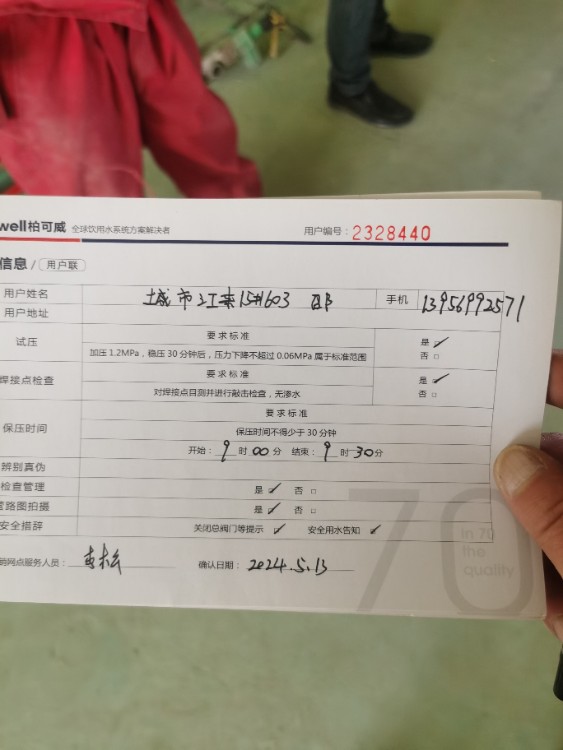 well柏可威 全球饮用水系统方案解决者 用户编号: 2328440
信息 / 用户联
用户姓名 城市之江来15#603 邱 手机 13956992571
用户地址
试压 要求标准 是
加压 1.2MPa，稳压 30 分钟后，压力下降不超过 0.06MPa 属于标准范围 否
焊接点检查 要求标准 是
对焊接点目测并进行敲击检查，无渗水 否
保压时间 要求标准
保压时间不得少于 30 分钟
开始: 9 时 00 分 结束: 9 时 30 分
辨别真伪
检查管理 是 否
管路图拍摄 是 否
安全措辞 关闭总阀门等提示 安全用水告知
码网点服务人员: 确认日期: 2024.5.13
70
in 70
the
quality